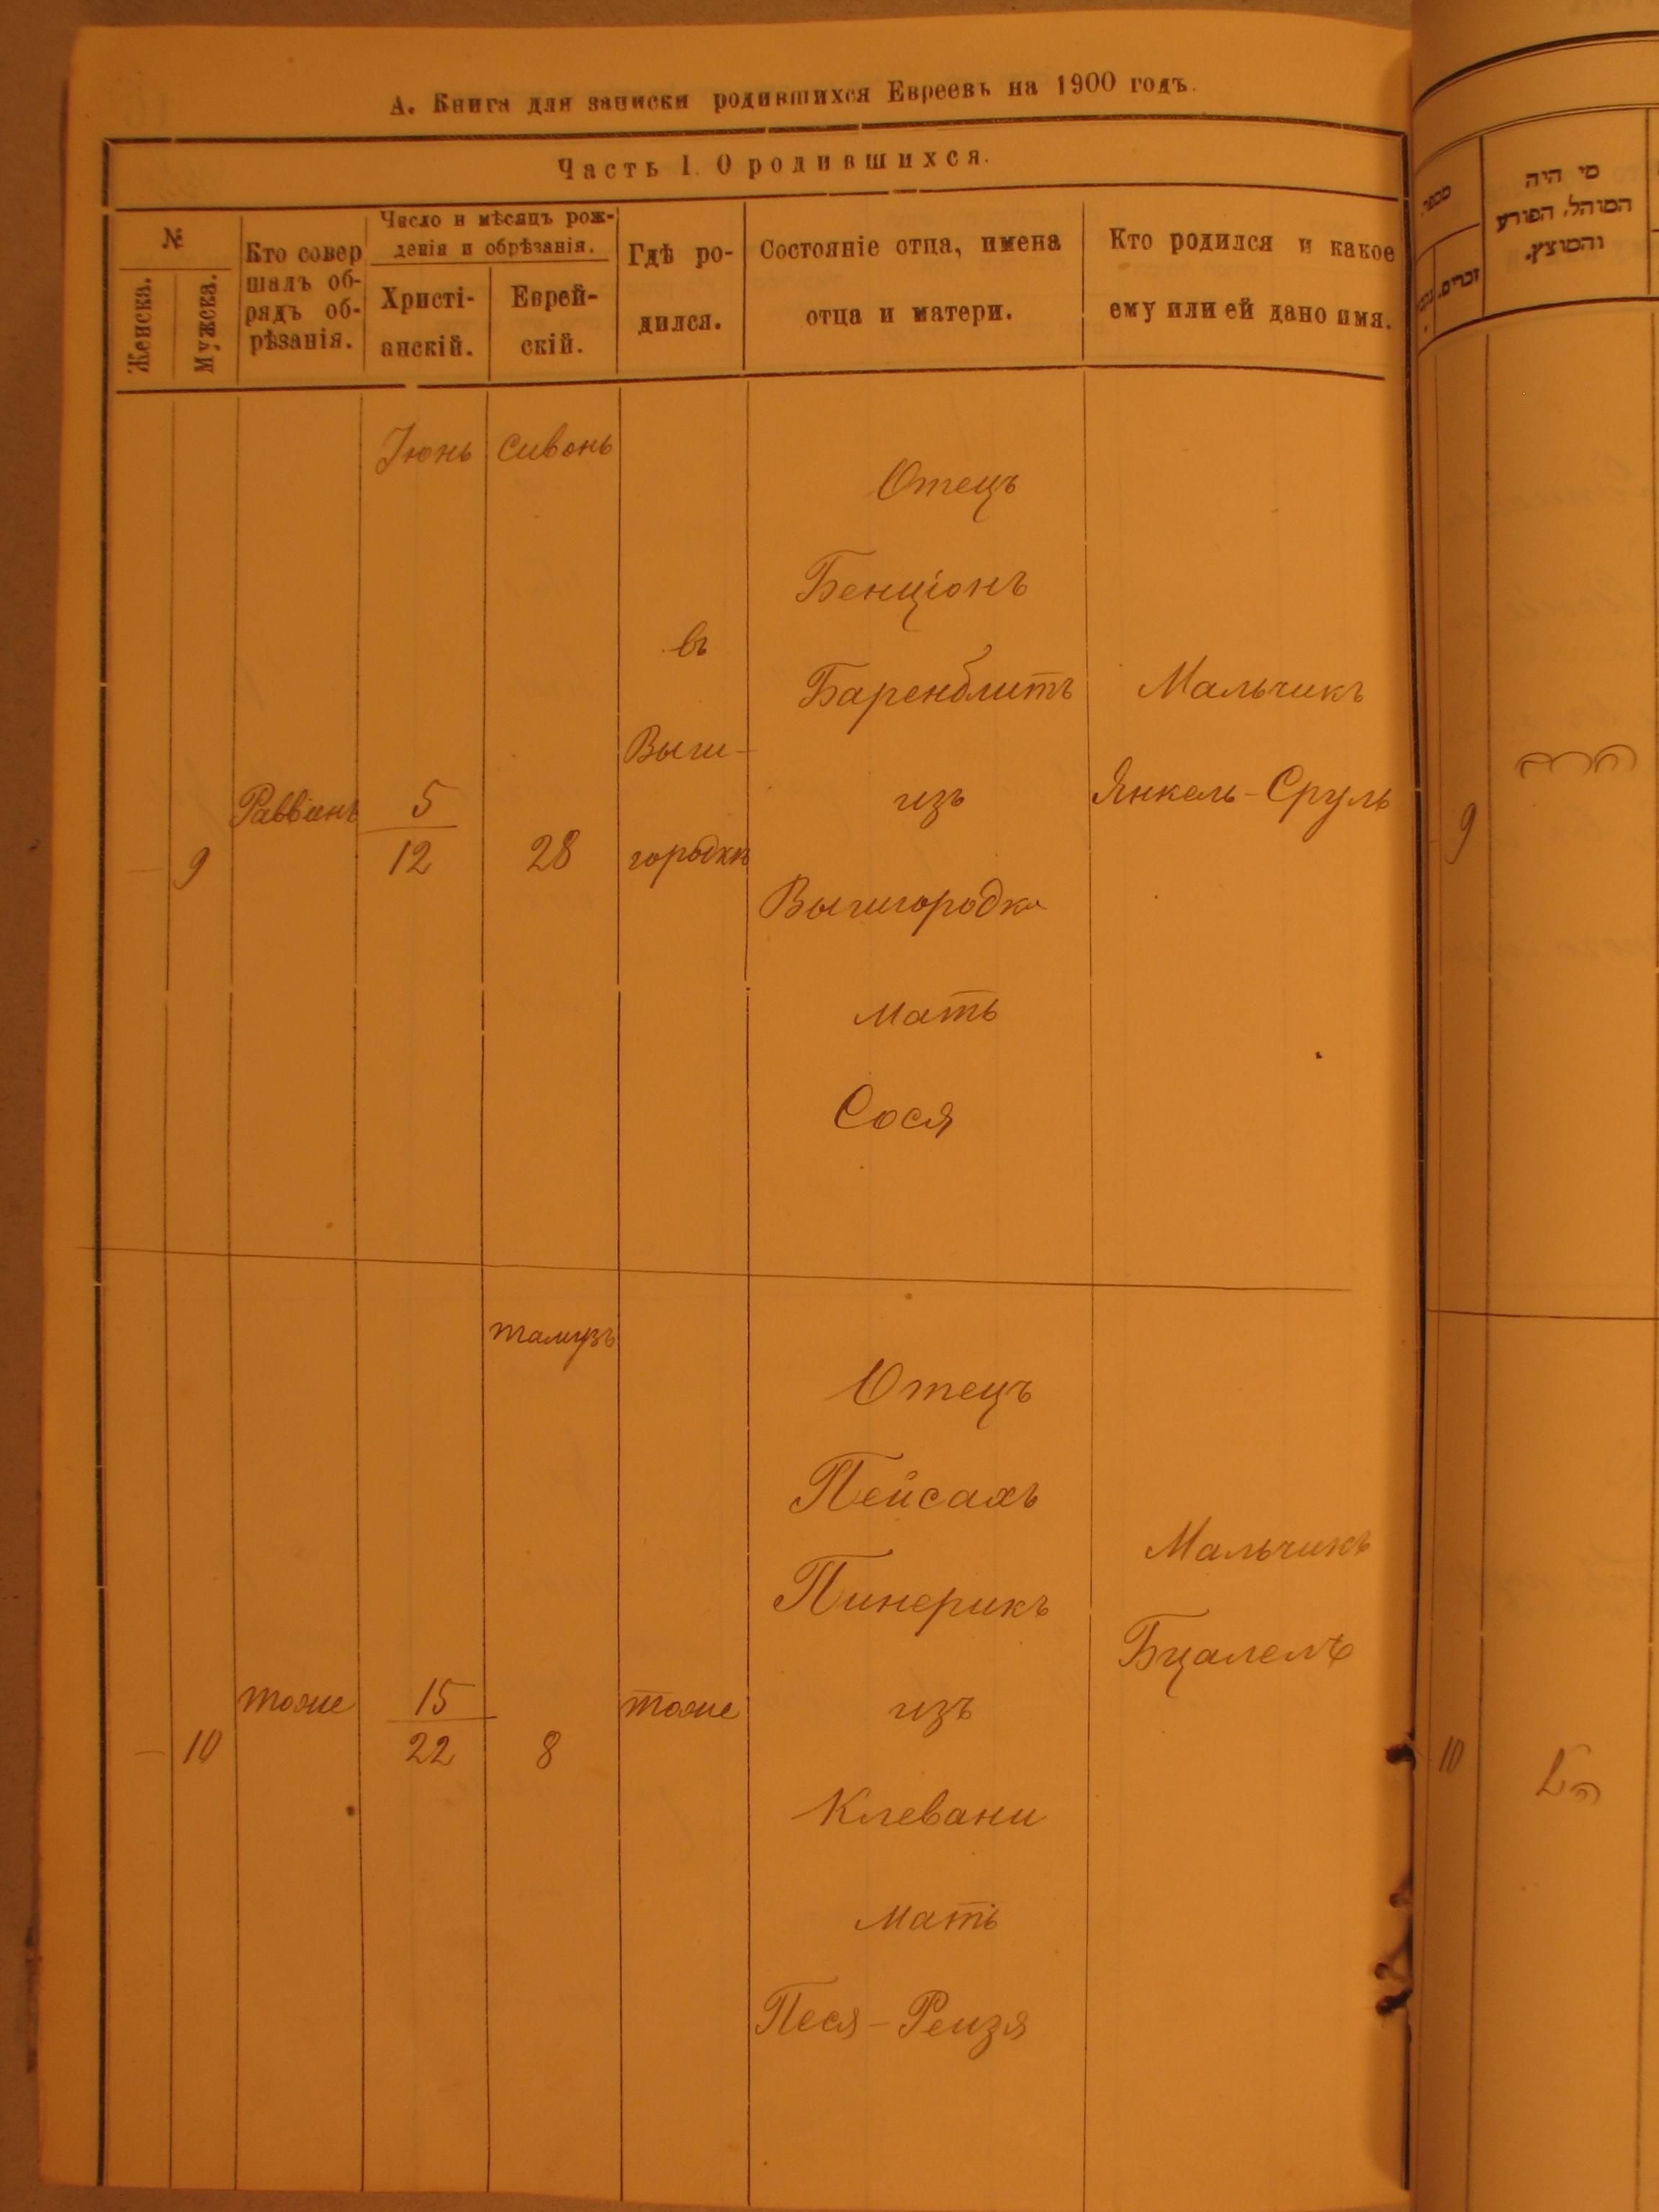 А. Книга для записки родившихся Евреевъ на 1900 годъ.
Часть I. О родившихся.
№
Женска.
Мужска.
Кто совер
шалъ об-
рядъ об-
рѣзанія.
Число и мѣсяцъ рож-
денія и обрѣзанія.
Христі-
анскій.
Еврей-
скій.
Гдѣ ро-
дился.
Состояніе отца, имена
отца и матери.
Кто родился и какое
ему или ей дано имя.
Іюнь
Сивонь
9
Раввинъ
5
12
28
въ
Выш-
городкѣ
Отецъ
Бенціонъ
Баренблитъ
изъ
Вышгородка
Мать
Сося
Мальчикъ
Янкель-Сруль
тамузъ
10
тоже
15
22
8
тоже
Отецъ
Пейсахъ
Пинерикъ
изъ
Клевани
Мать
Песя-Реизя
Мальчикъ
Бцалелъ
מספר
זכרים.
מי היה
המוהל, הפורע
והמוצץ.
9
10